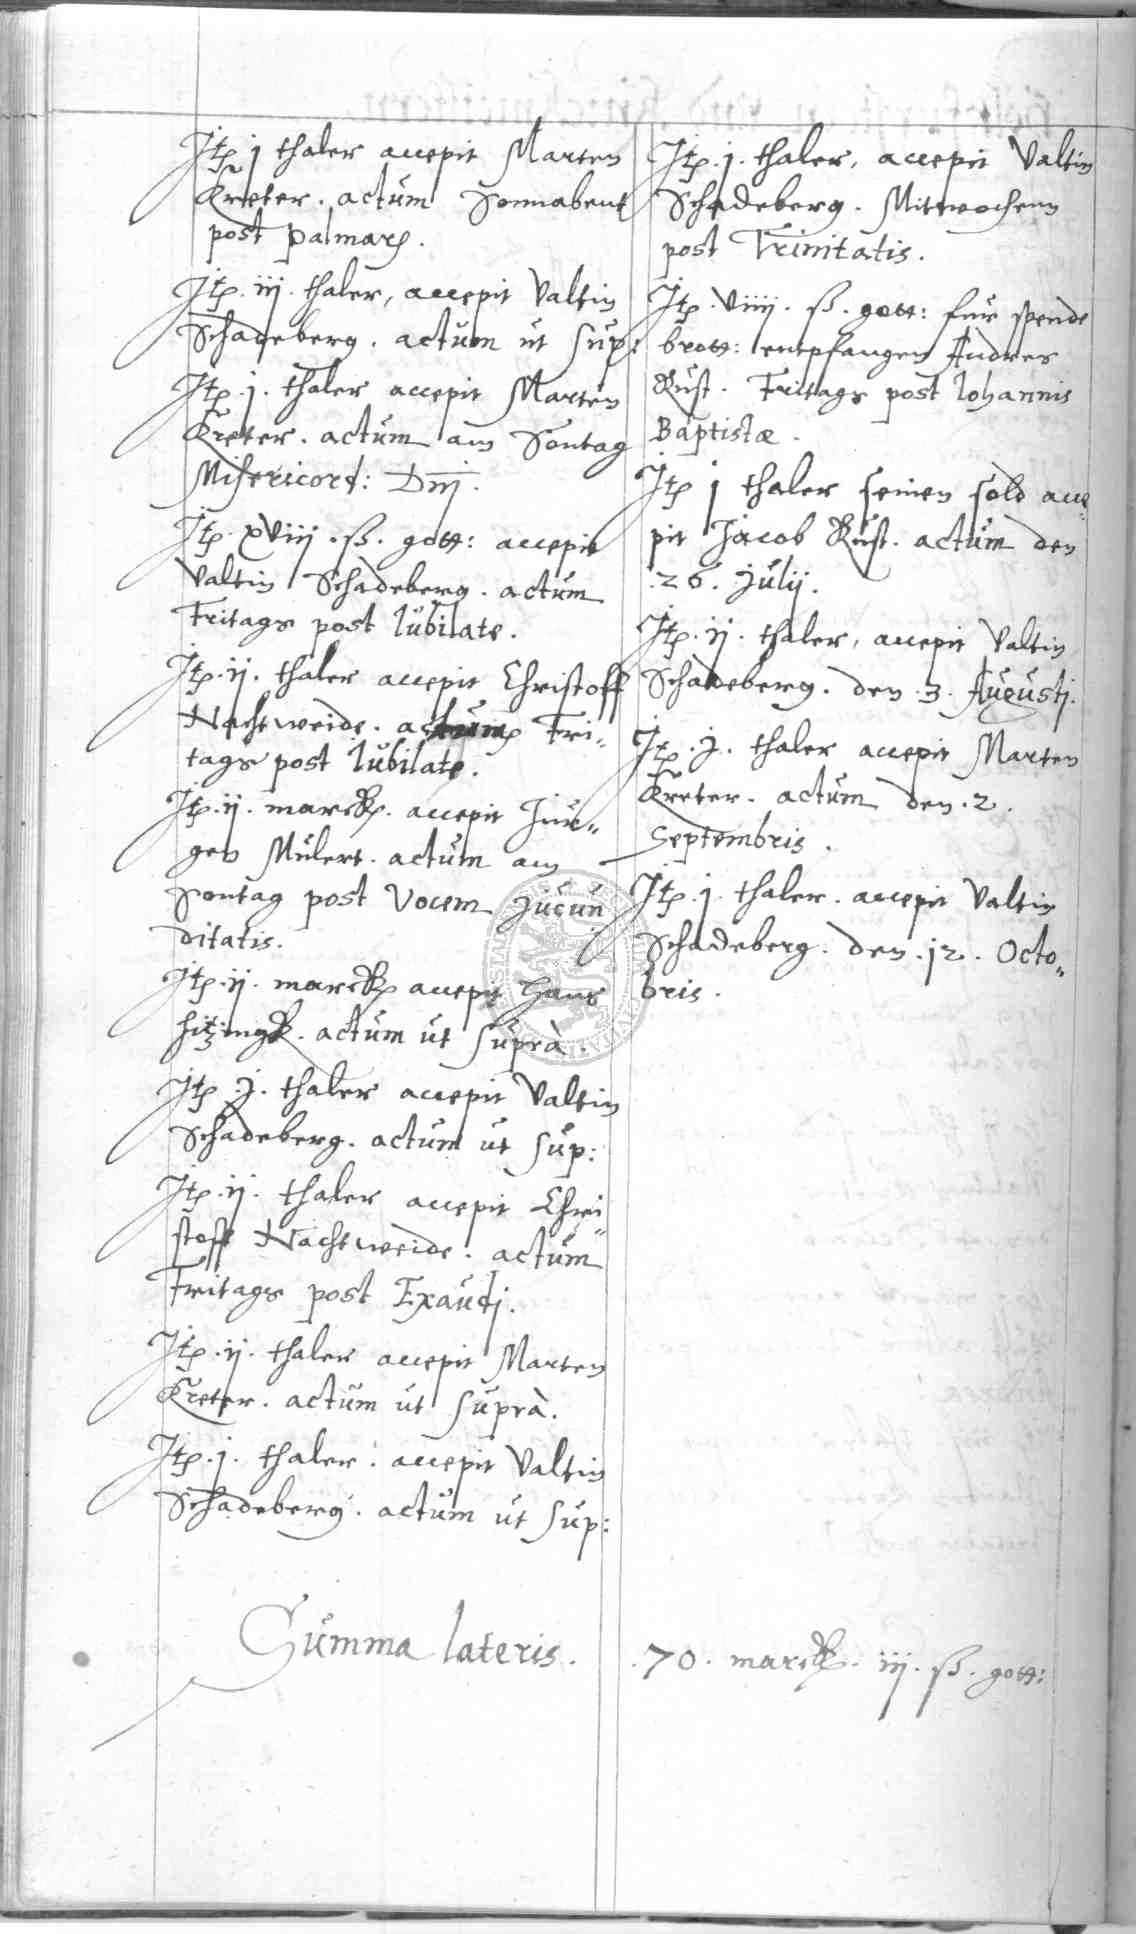 Itp j thaler accepit Marten
Kreter. actum Sonnabent
post Palmarum.
Itp. iij. thaler, accepit Valtin
Schadeberg. actum ut sup:
Itp. j. thaler accepit Marten
Kreter. actum am Sontag
Misericord: Dnj.
Itp. xviij. ß. gott: accepit
Valtin Schadeberg. actum
Fritags post Iubilate.
Itp. ij. thaler accepit Christoff
Nachtweide. actum Fri„
tags post Iubilate.
Itp. ij. marck. accepit Jur„
gen Mulert. actum am
Sontag post Vocem jucun
ditatis.
Itp. ij. marck accepit Hans
hitzingk. actum ut suprà.
Itp. j. thaler accepit Valtin
Schadeberg. actum ut sup:
Itp. ij. thaler accepit Chri„
stoff Nachtweide. actum
Fritags post Exaudj.
Itp. ij. thaler accepit Marten
Kreter. actum ut suprà.
Itp. j. thaler: accepit Valtin
Schadeberg. actum ut sup:
Itp. j. thaler, accepit Valtin
Schadeberg. Mittwochenn
post Trinitatis.
Itp. viiij. ß. gott: fur spende
brott: entpfangen Andres
Rust. Fritags post Iohannis
Baptistæ.
Itp j thaler seinen sold acce„
pit Jacob Rust. actum den
.26. Julij.
Itp. ij. thaler, accepit Valtin
Schadeberg. den .3. Augustj.
Itp. j. thaler accepit Marten
Kreter. actum den .2.
Septembris.
Itp. j. thaler. accepit Valtin
Schadeberg. den .12. Octo„
bris.
Summa lateris. .70. marck. iij. ß. gott: